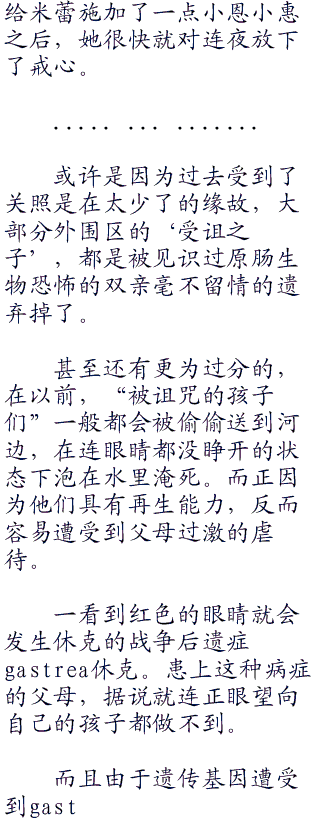 给米蕾施加了一点小恩小惠
之后，她很快就对连夜放下
了戒心。
..... ... .......
或许是因为过去受到了
关照是在太少了的缘故，大
部分外围区的‘受诅之
子’，都是被见识过原肠生
物恐怖的双亲毫不留情的遗
弃掉了。
甚至还有更为过分的，
在以前，“被诅咒的孩子
们”一般都会被偷偷送到河
边，在连眼睛都没睁开的状
态下泡在水里淹死。而正因
为他们具有再生能力，反而
容易遭受到父母过激的虐
待。
一看到红色的眼睛就会
发生休克的战争后遗症
gastrea休克。患上这种病症
的父母，据说就连正眼望向
自己的孩子都做不到。
而且由于遗传基因遭受
到gast